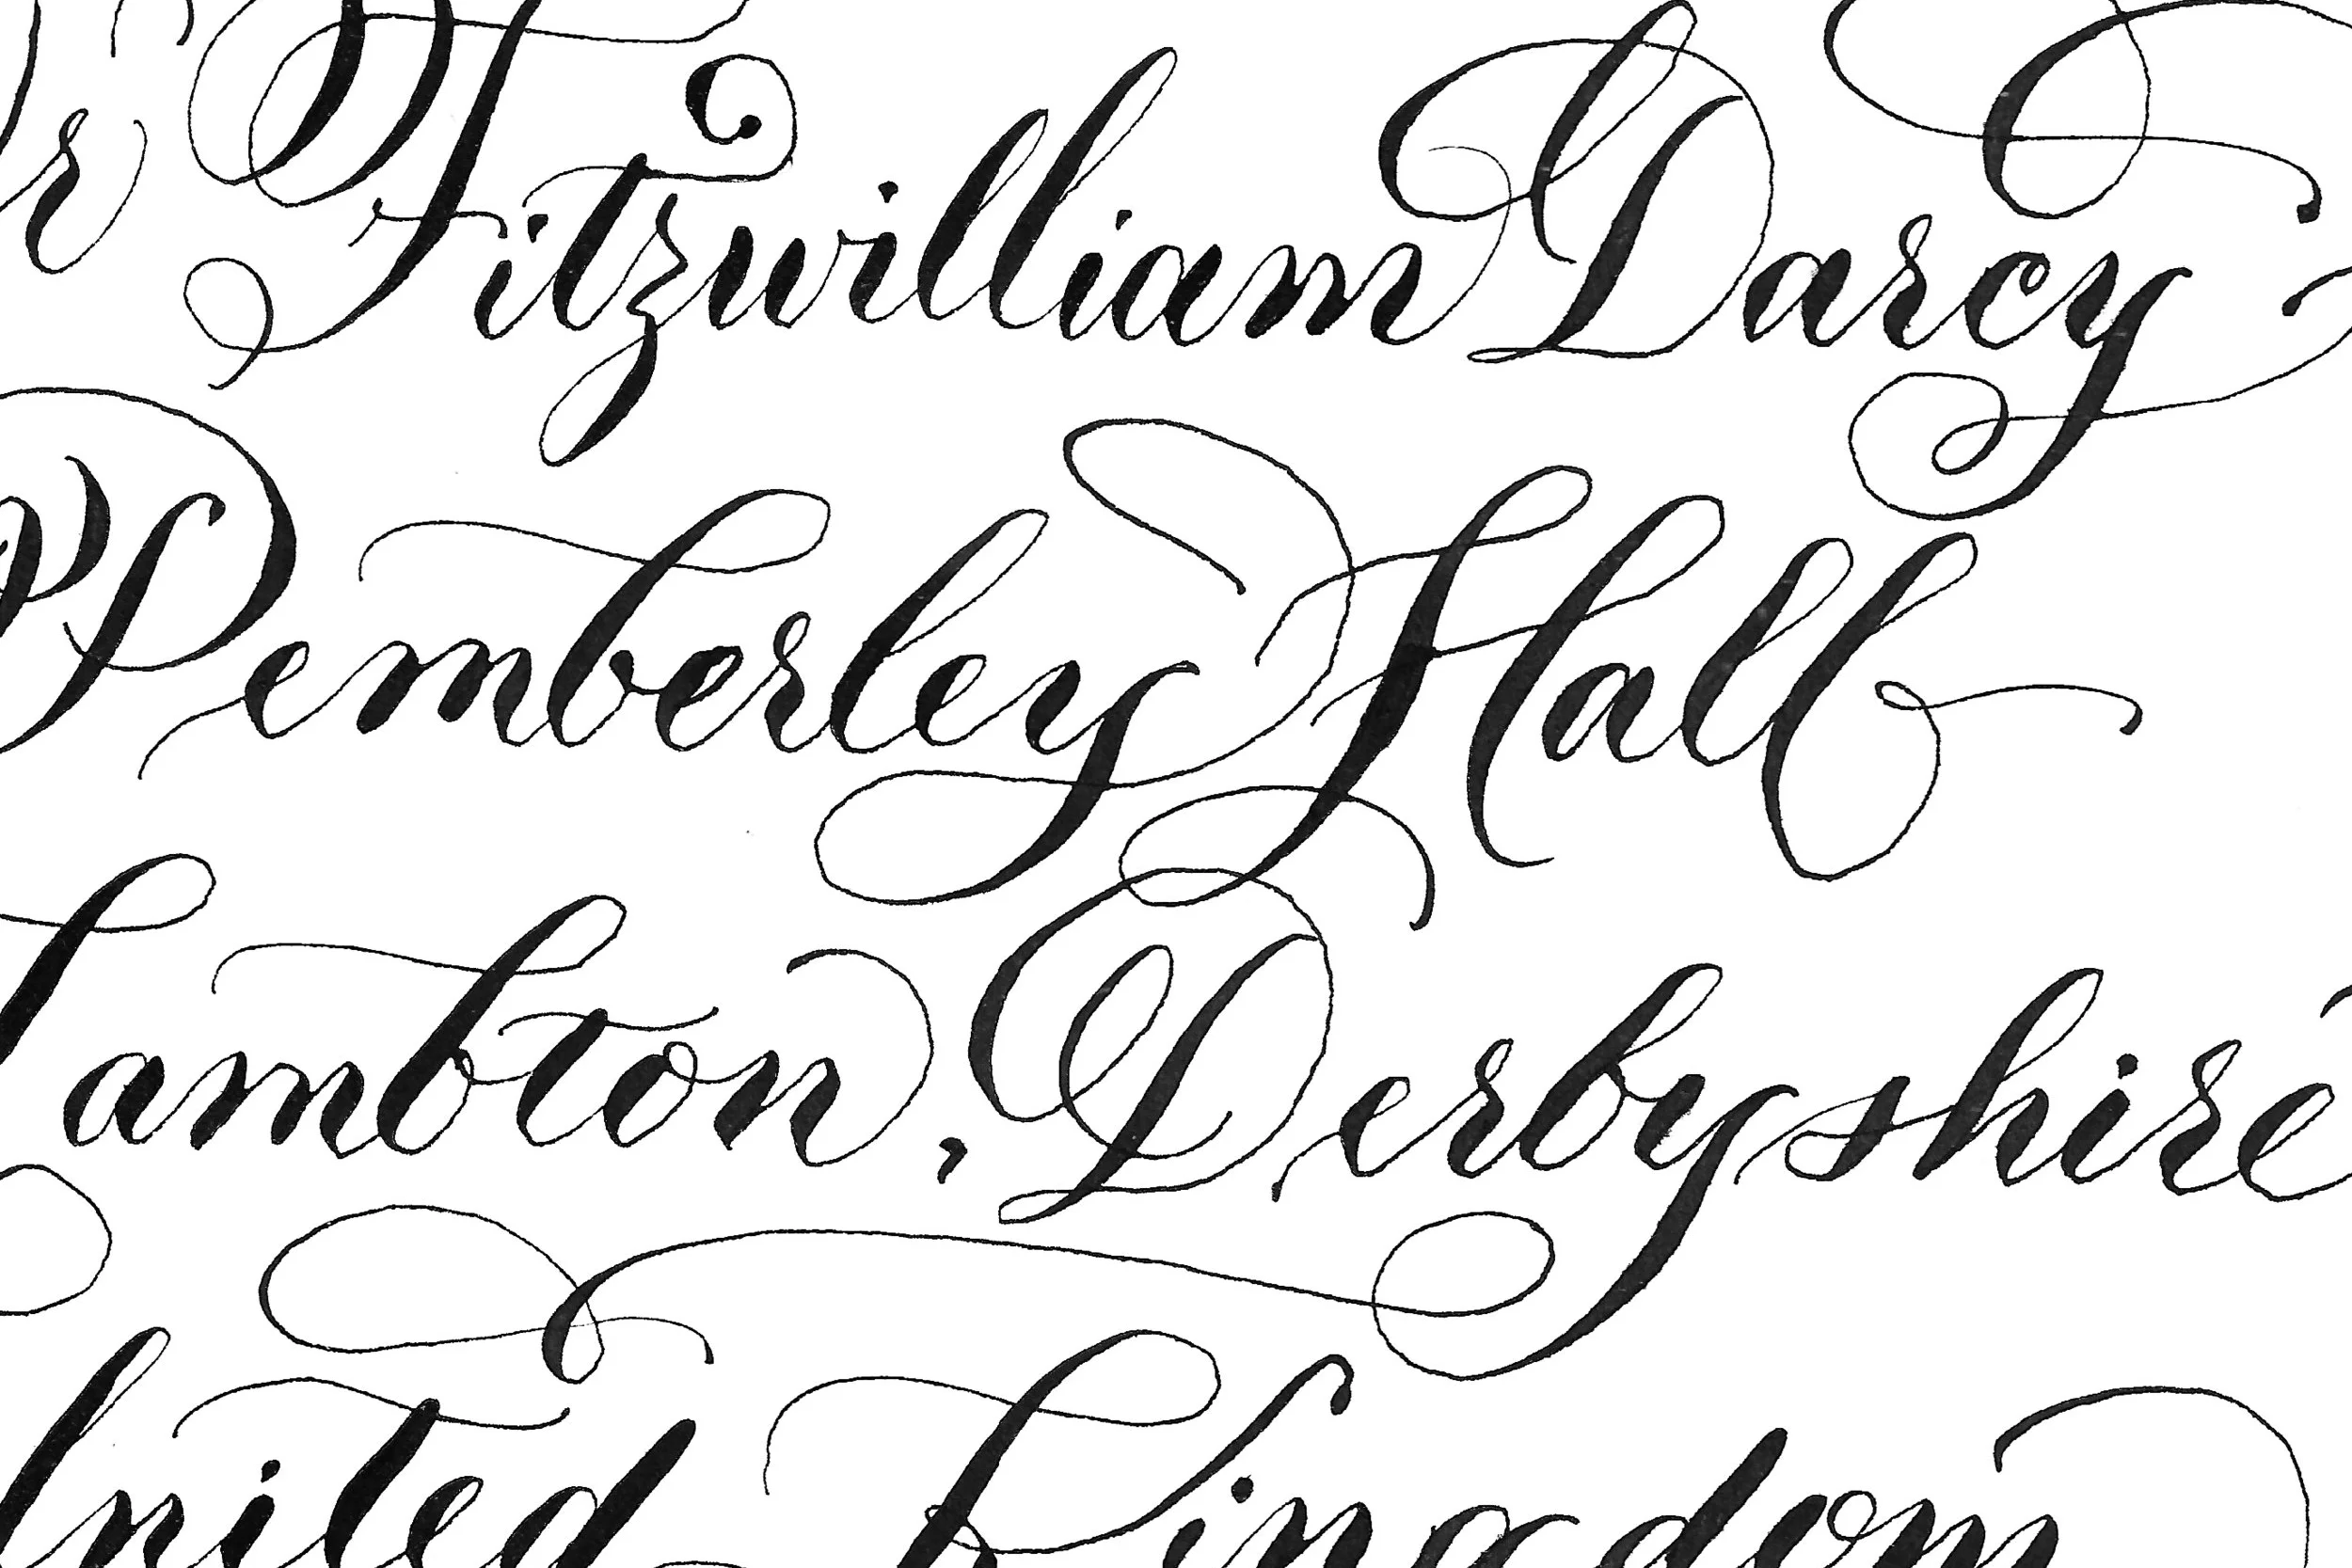 r Fitzwilliam Darcy
Pemberley Hall
Lambton, Derbyshire
United Kingdom